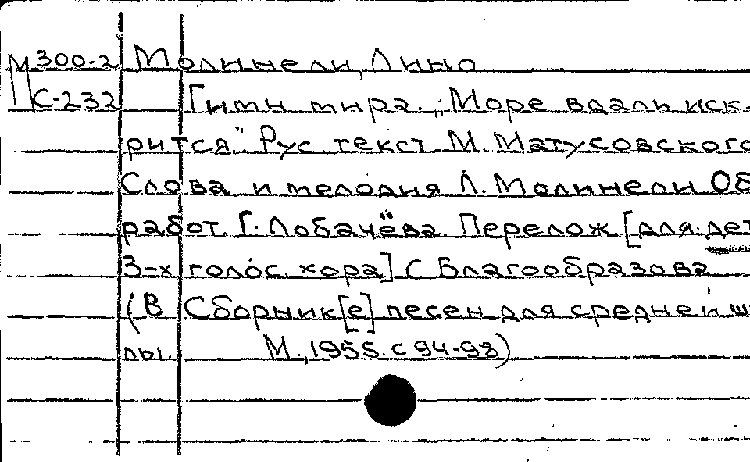 М 300-2 Молинели, Лино
С-232 Гимн мира. „Море вдали иск-
рится" Рус текст М. Матусовского
Слова и мелодия Л. Молинели Об
работ. Г. Лобачёва. Перелож [для дет
3-х голос. хора] С Благообразова
(В Сборник[е] песен для средней ш
лы. М., 1955. с 94-98)